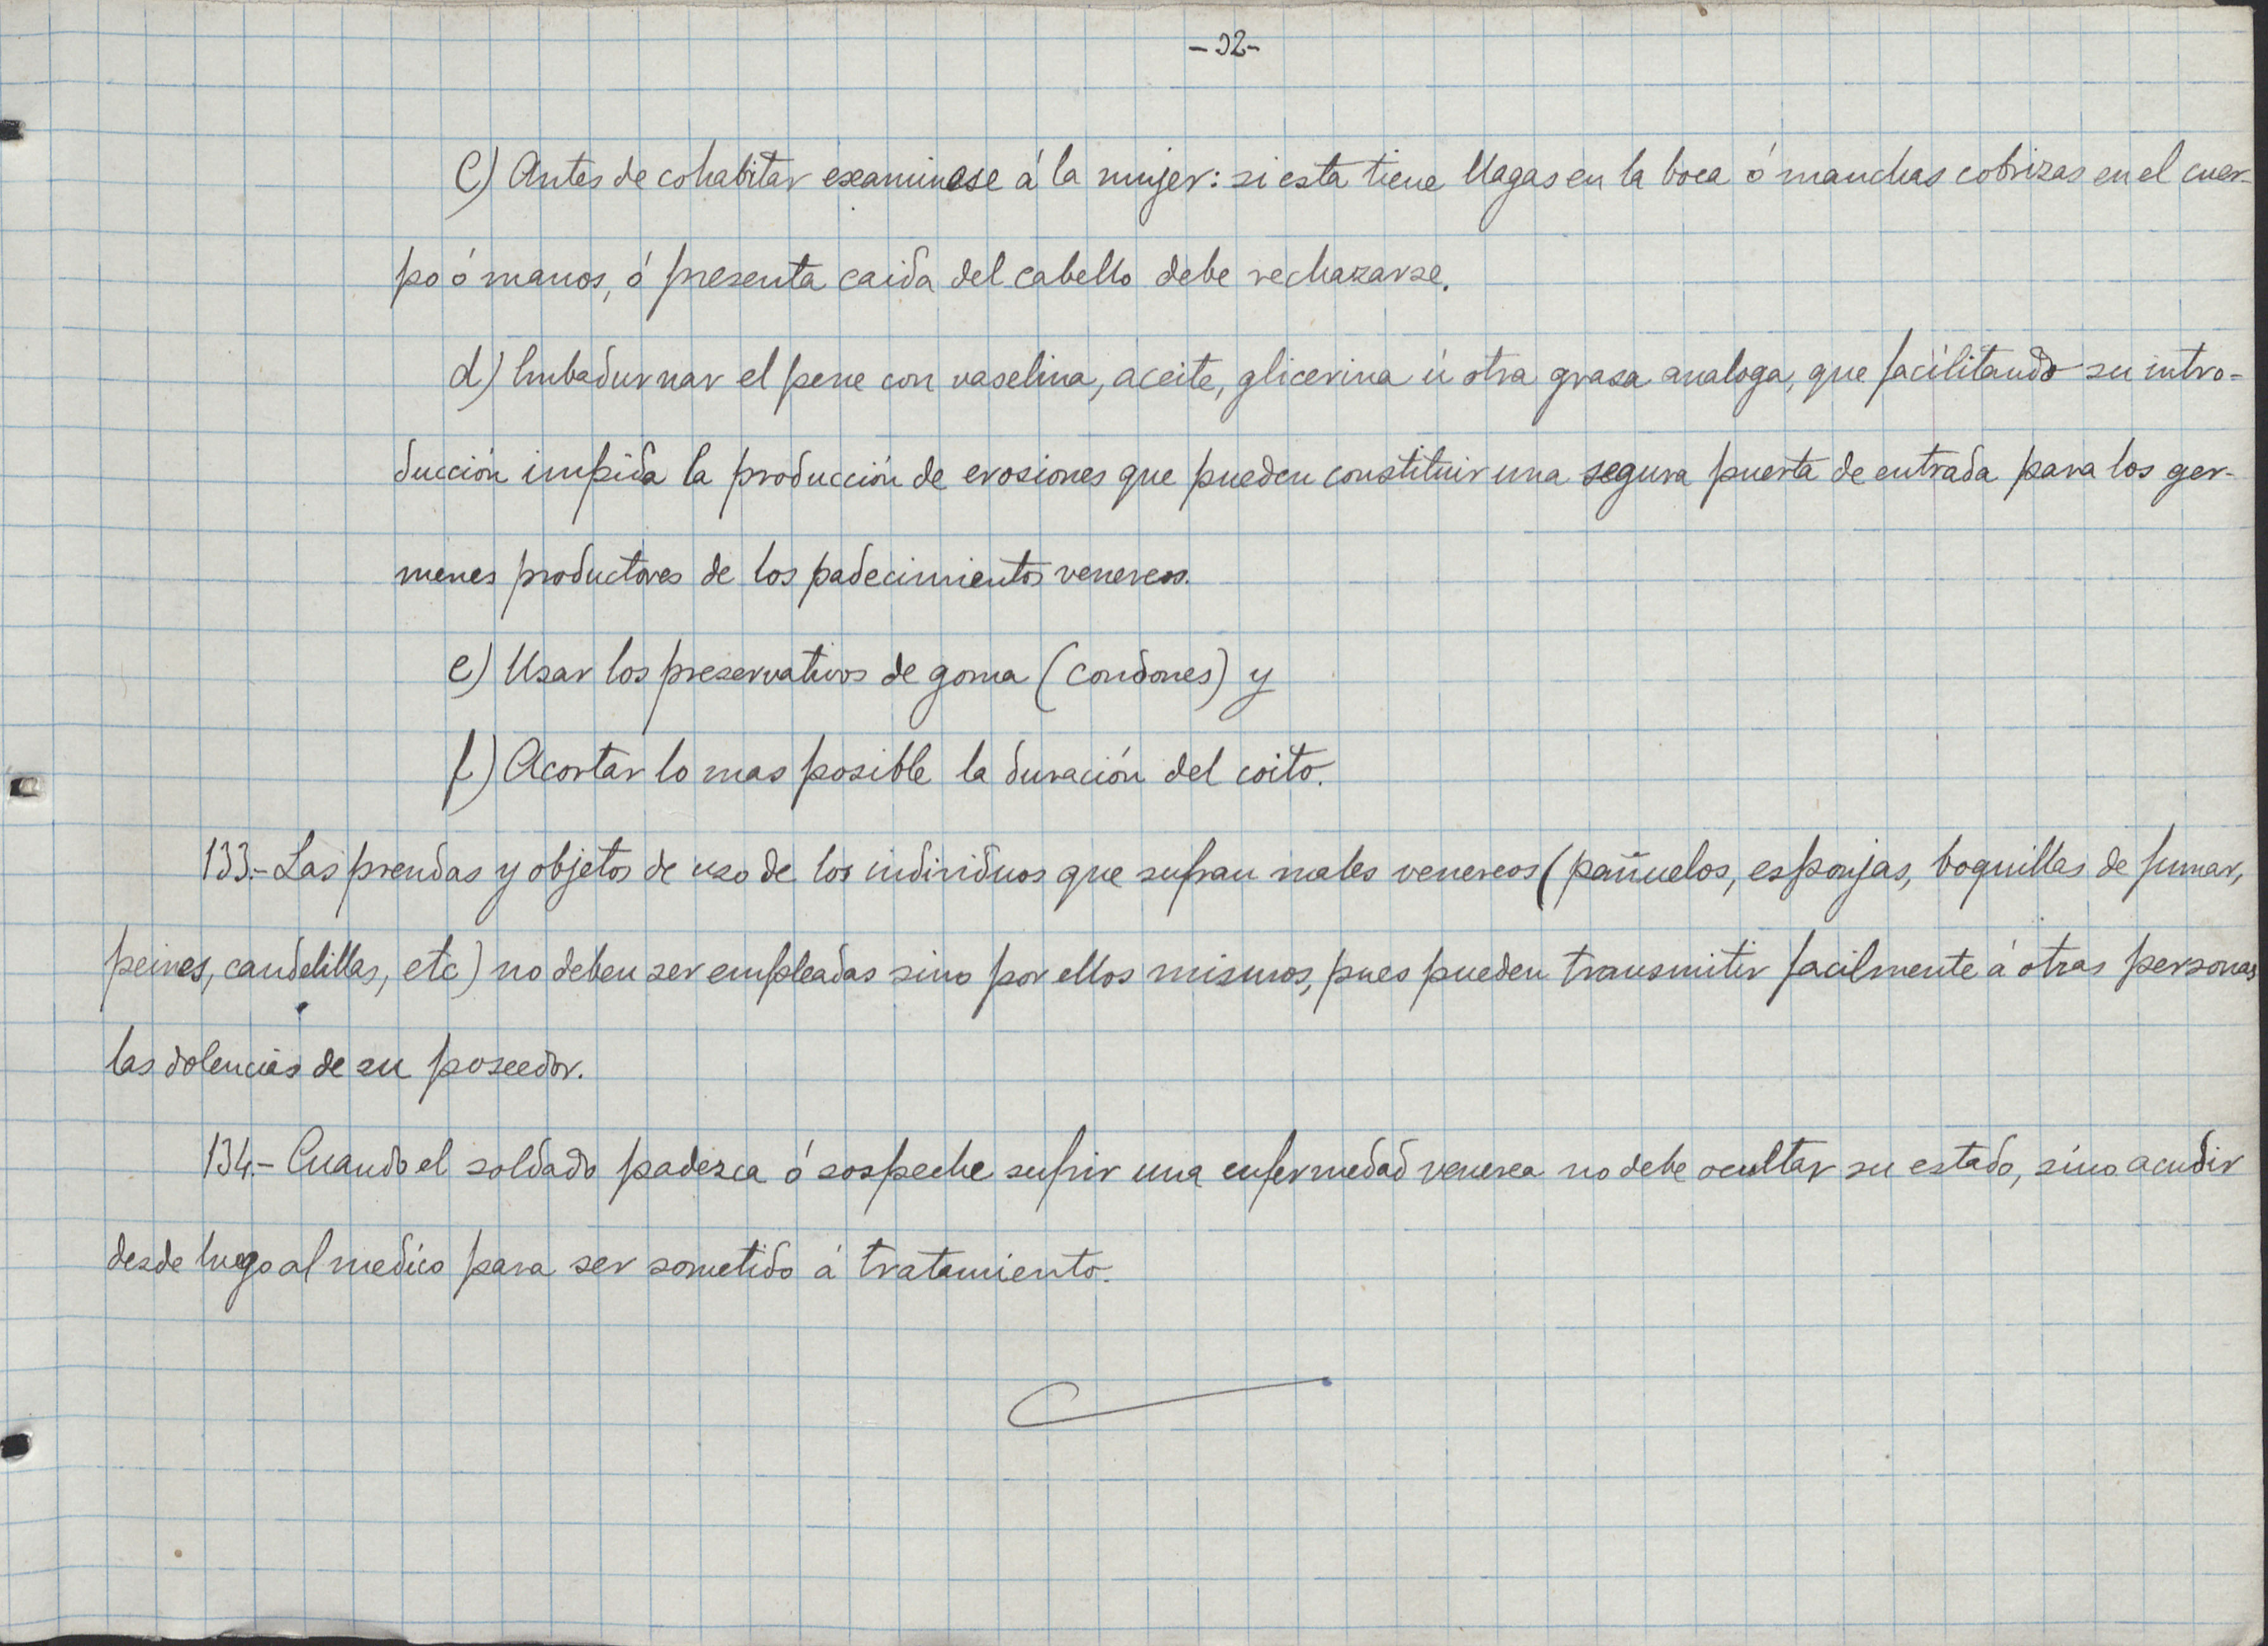 -32-
c) Antes de cohabitar examinese á la mujer: si esta tiene llagas en la boca ó manchas cobrizas en el cuer-
po ó manos, ó presenta caida del cabello debe rechazarse.
d) Embadurnar el pene con vaselina, aceite, glicerina ú otra grasa analoga, que facilitando su intro-
ducción impida la producción de erosiones que pueden constituir una segura puerta de entrada para los ger-
menes productores de los padecimientos venereos.
e) Usar los preservativos de goma (condones) y
f) Acortar lo mas posible la duración del coito.
133.- Las prendas y objetos de uso de los individuos que sufran males venereos (pañuelos, esponjas, boquillas de fumar,
peines, candelillas, etc) no deben ser empleadas sino por ellos mismos, pues pueden transmitir facilmente á otras personas
las dolencias de su poseedor.
134.- Cuando el soldado padezca ó sospeche sufrir una enfermedad venerea no debe ocultar su estado, sino acudir
desde luego al medico para ser sometido á tratamiento.